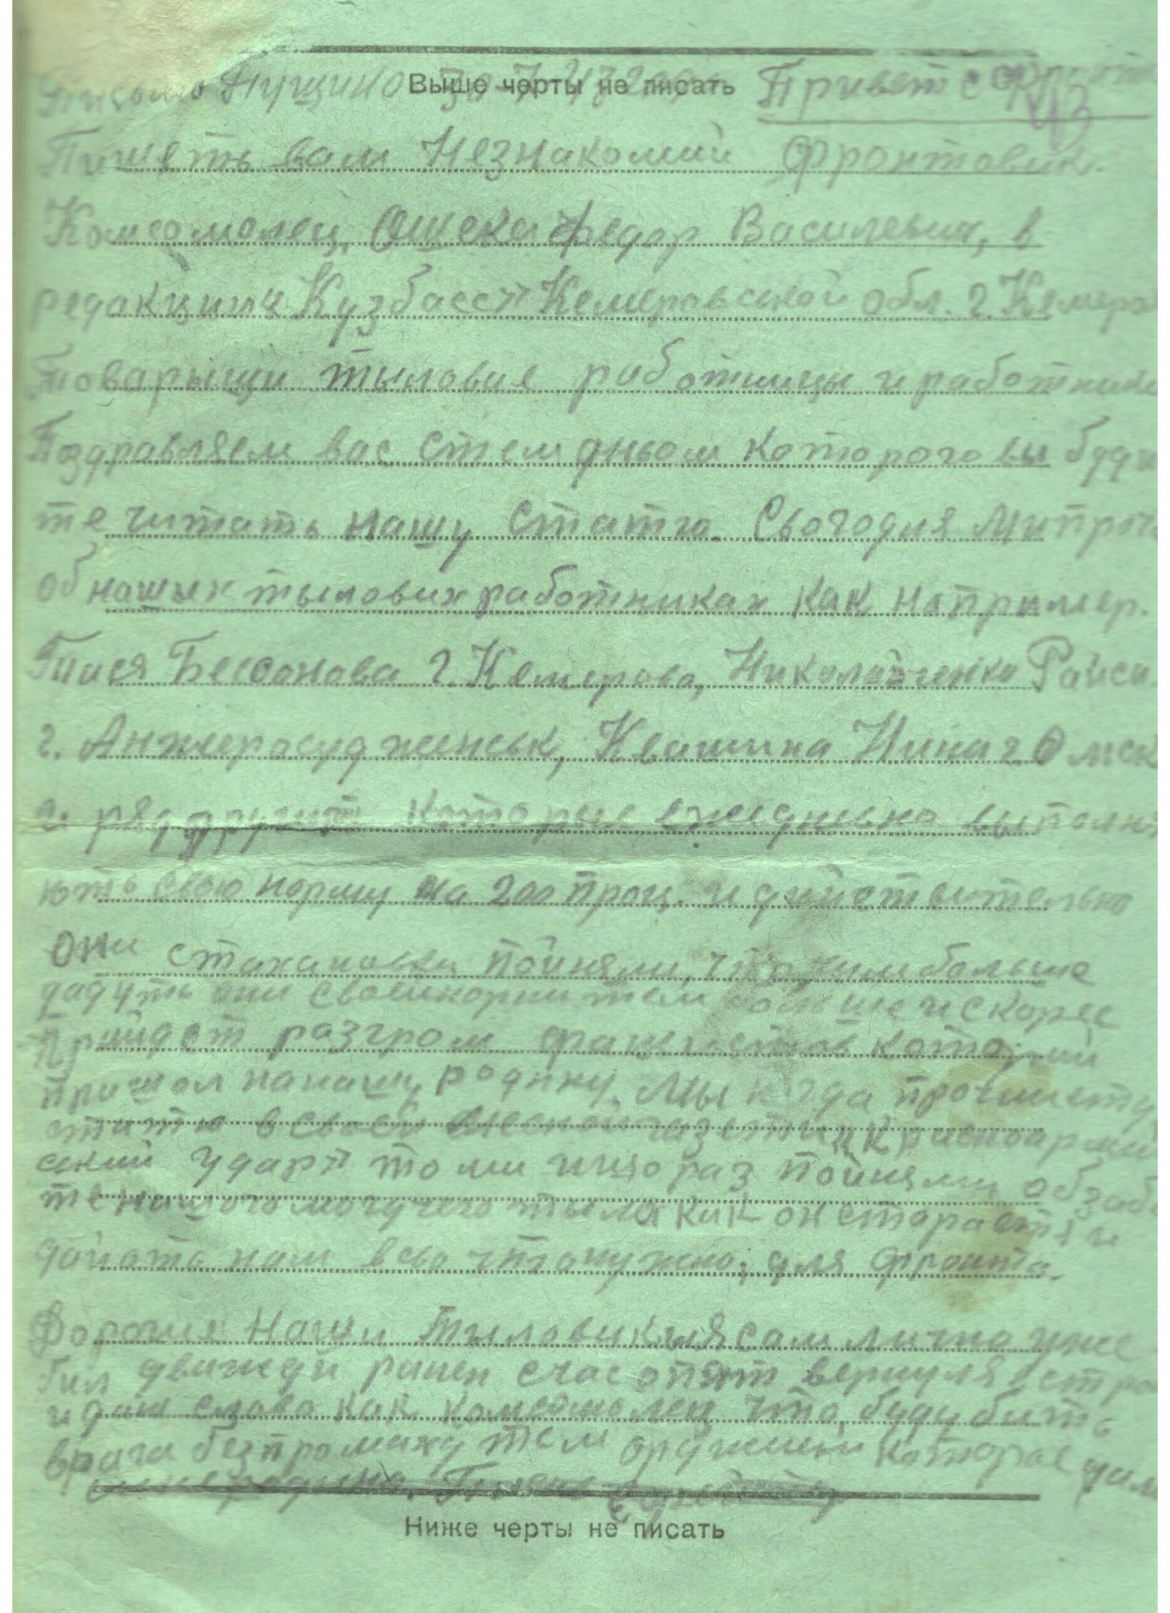 Письмо Пущино Выше черты не писать Привет с фронта
43
Пишеть вам Незнакомий фронтовик.
Комсомолец, Ошека Федор Василевич, в
редакцыия Кузбасс" Кемеровской обл. г. Кемеро
Товарыщи тыловие работницы и работники
Поздравляем вас стем дньом которого вы буди
те читать нашу статю. Сьогодня Ми проч
об нашых тылових работниках как например.
Тися Бессонова г. Кемерова, Николайченко Раиси
г. Анжеросудженськ, Квашина Нина г Омск
и ряд других которые ежедневно выполня
ють свою норму на 200 проц. и действительно
они стахановки пойняли, что чим больше
дадуть они свое норми тем и скорее
прийдет разгром фашистов которий
пришол на нашу родину. Мы когда прочли эту
статю в своей газети „Красноарми
ский удар" то ми ищо раз пойняли об заб
те нашого могучего тыла как он старается и
дайоть нам всьо что нужно, для фронта.
Дорогие Наши Тыловики я сам лична уже
бил движди ранен счас опят вернуля в стро
и дам слава как комсомолец что буду бить
врага безпромаху тем оружием которое дала
мне родина.
Ниже черты не писать